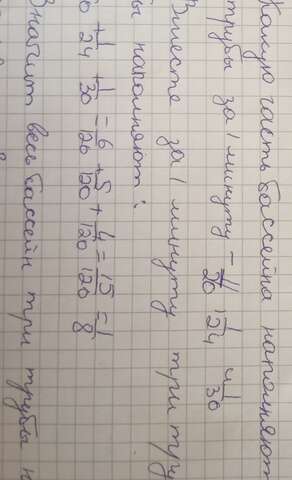 Какую часть бассейна наполняют
трубы за 1 минуту - 1/20, 1/24 и 1/30
Вместе за 1 минуту три тру
наполняют:
+ 1/24 + 1/30 = 6/120 + 5/120 + 4/120 = 15/120 = 1/8
Значит весь бассейн три трубы н